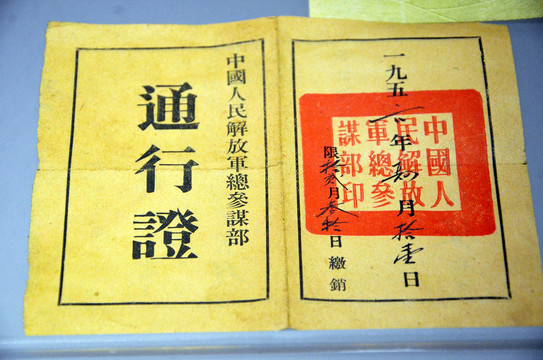 一九五年月拾壹日
中國人
民解放
軍總參
謀部印
限拾月叁拾日繳銷
中國人民解放軍總參謀部
通行證